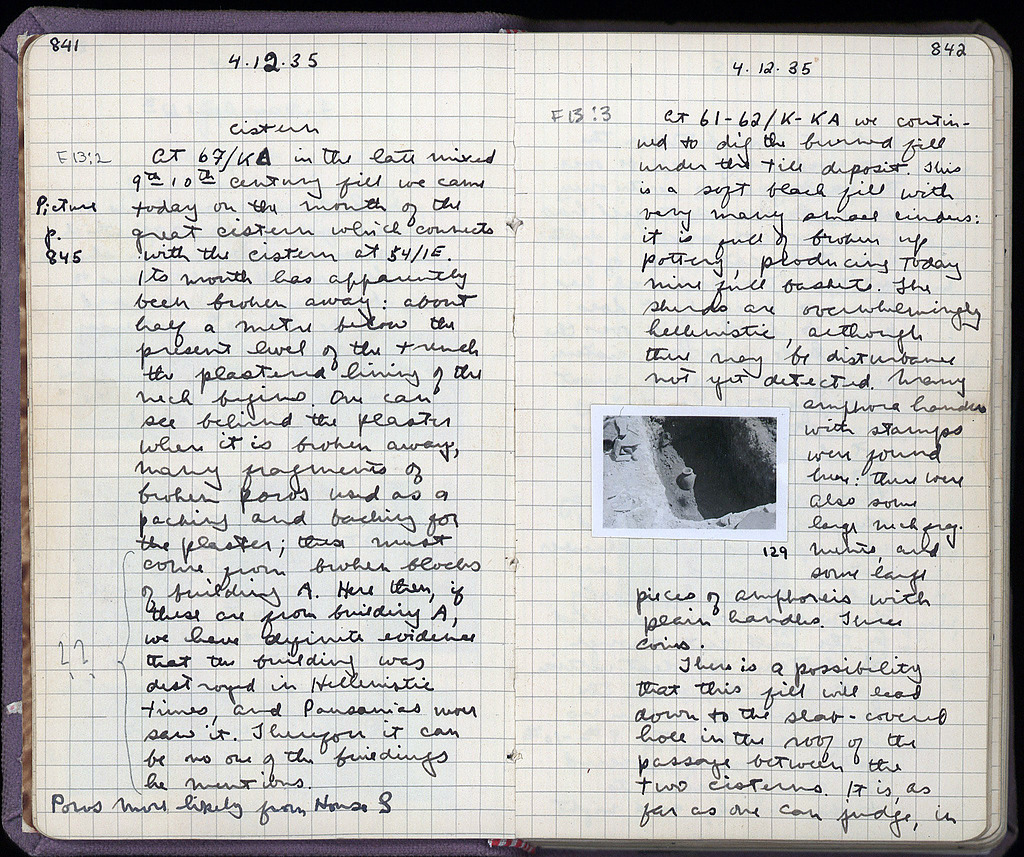 841
4.12.35
cistern
F13:2
At 67/KA in the late mixed
9th 10th century fill we came
Picture
p.
845
today on the mouth of the
great cistern which connects
with the cistern at 54/ΙΕ.
Its mouth has apparently
been broken away: about
half a metre below the
present level of the trench
the plastered lining of the
neck begins. One can
see behind the plaster
where it is broken away,
many fragments of
broken poros used as a
packing and backing for
the plaster; these must
come from broken blocks
of building A. Here then, if
these are from building A,
we have definite evidence
??
that the building was
destroyed in Hellenistic
times, and Pausanias never
saw it. Therefore it can
be no one of the buildings
he mentions.
Poros more likely from House
842
4.12.35
F13:3
At 61-62/K-KA we contin-
ued to dig the burned fill
under the tile deposit. This
is a soft black fill with
very many small cinders:
it is full of broken up
pottery, producing today
nine full baskets. The
sherds are overwhelmingly
hellenistic, although
there may be disturbance
not yet detected. Many
amphora handles
with stamps
were found
here: there were
also some
large neck frag-
ments, and
some large
129
pieces of amphoreis with
plain handles. Three
coins.
There is a possibility
that this fill will lead
down to the slab-covered
hole in the roof of the
passage between the
two cisterns. It is, as
far as one can judge, in